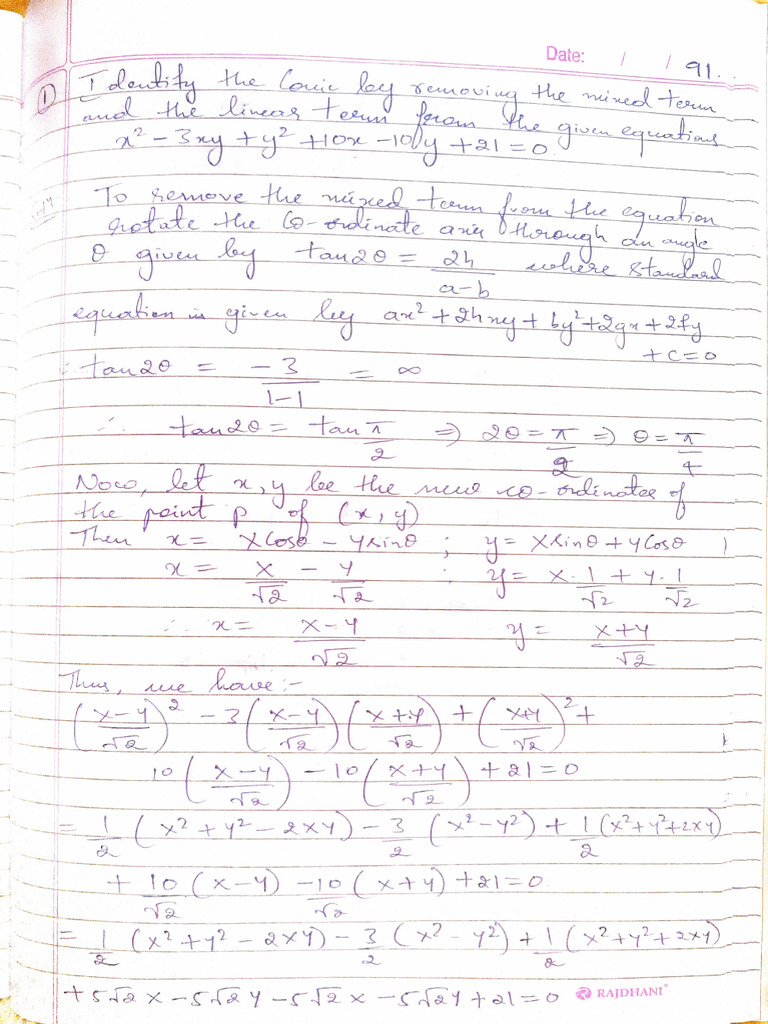 Date: / / 91..
① Identify the Conic by removing the mixed term
and the linear term from the given equations
x² - 3xy + y² + 10x - 10y + 21 = 0.
To remove the mixed term from the equation
rotate the Co-ordinate axis through an angle
θ given by tan2θ = 2h/(a-b) where standard
equation is given by ax² + 2hxy + by² + 2gx + 2fy
+ c = 0
∴ tan2θ = -3/(1-1) = ∞
∴ tan2θ = tan π/2 ⇒ 2θ = π/2 ⇒ θ = π/4
Now, let x, y be the new co-ordinates of
the point P of (x, y)
Then x = Xcosθ - Ysinθ ; y = Xsinθ + Ycosθ
x = X/√2 - Y/√2 ; y = X·1/√2 + Y·1/√2
∴ x = (X-Y)/√2 y = (X+Y)/√2
Thus, we have:-
((X-Y)/√2)² - 3((X-Y)/√2)((X+Y)/√2) + ((X+Y)/√2)² +
10((X-Y)/√2) - 10((X+Y)/√2) + 21 = 0
= 1/2 (X² + Y² - 2XY) - 3/2 (X² - Y²) + 1/2 (X² + Y² + 2XY)
+ 10/√2 (X-Y) - 10/√2 (X+Y) + 21 = 0.
= 1/2 (X² + Y² - 2XY) - 3/2 (X² - Y²) + 1/2 (X² + Y² + 2XY)
+ 5√2 X - 5√2 Y - 5√2 X - 5√2 Y + 21 = 0 RAJDHANI®